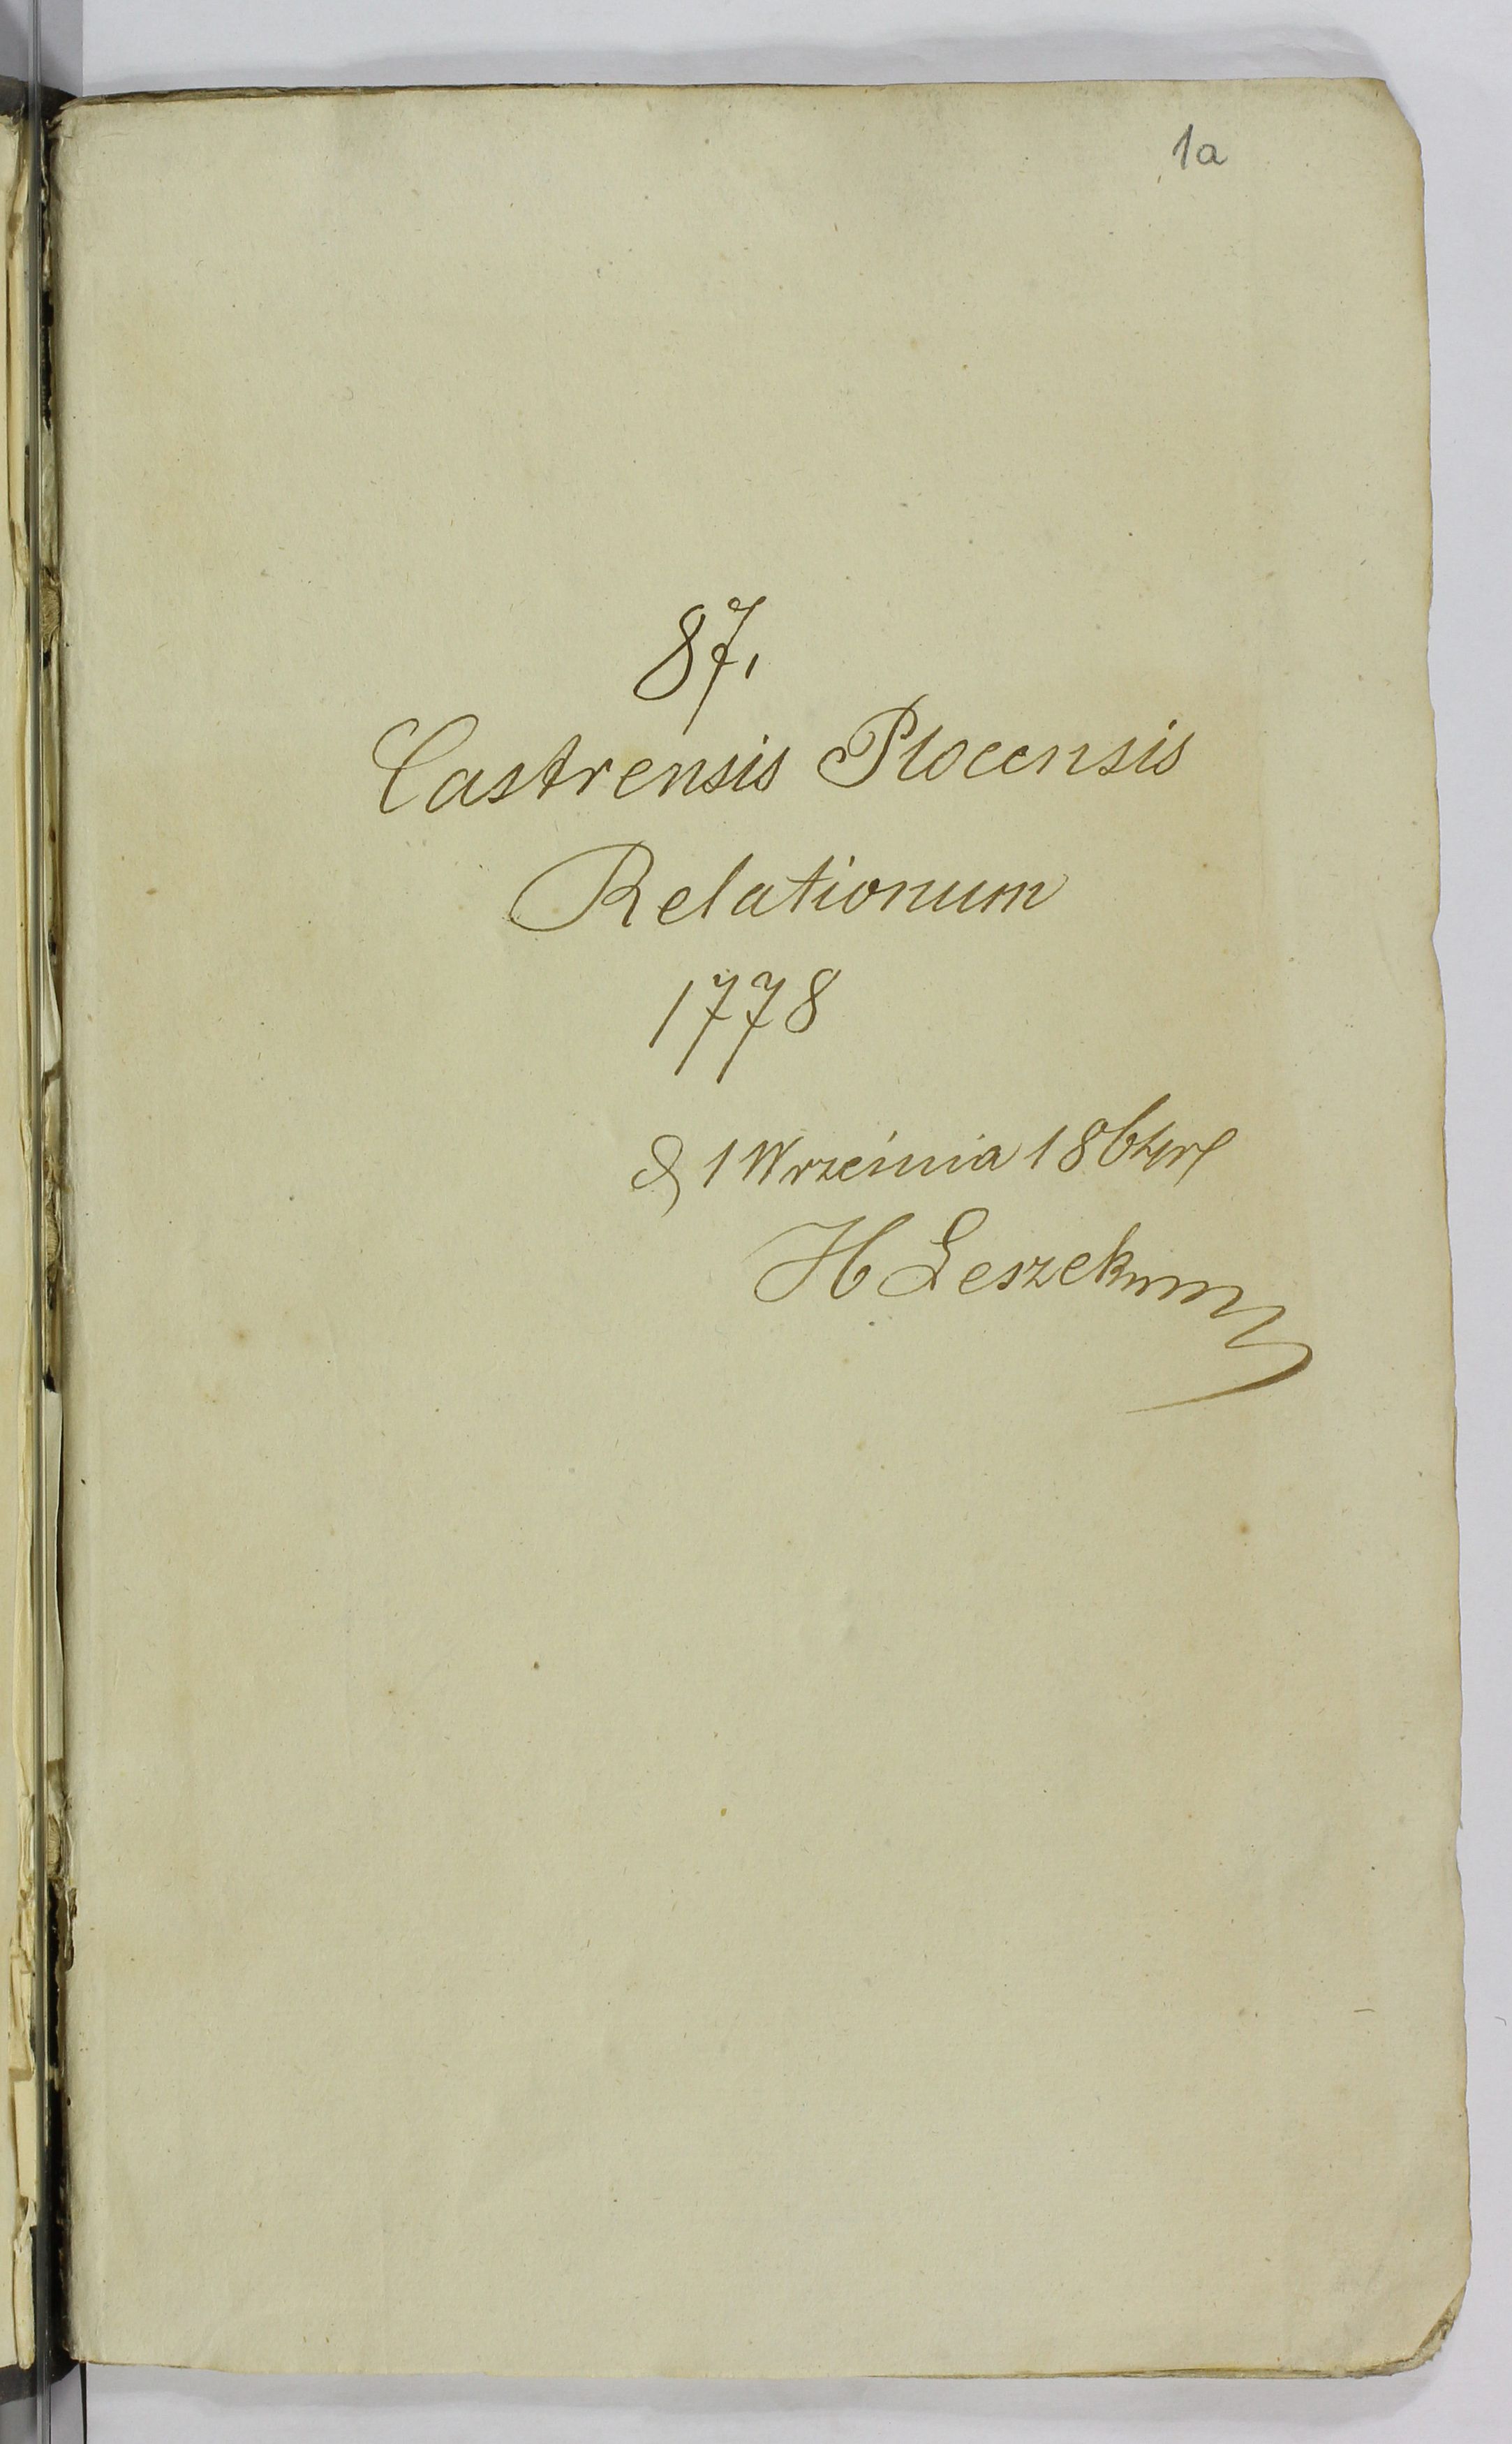 1a
87.
Castrensis Plocensis
Relationum
1778
d 1 Września 1864 r
H Leszek